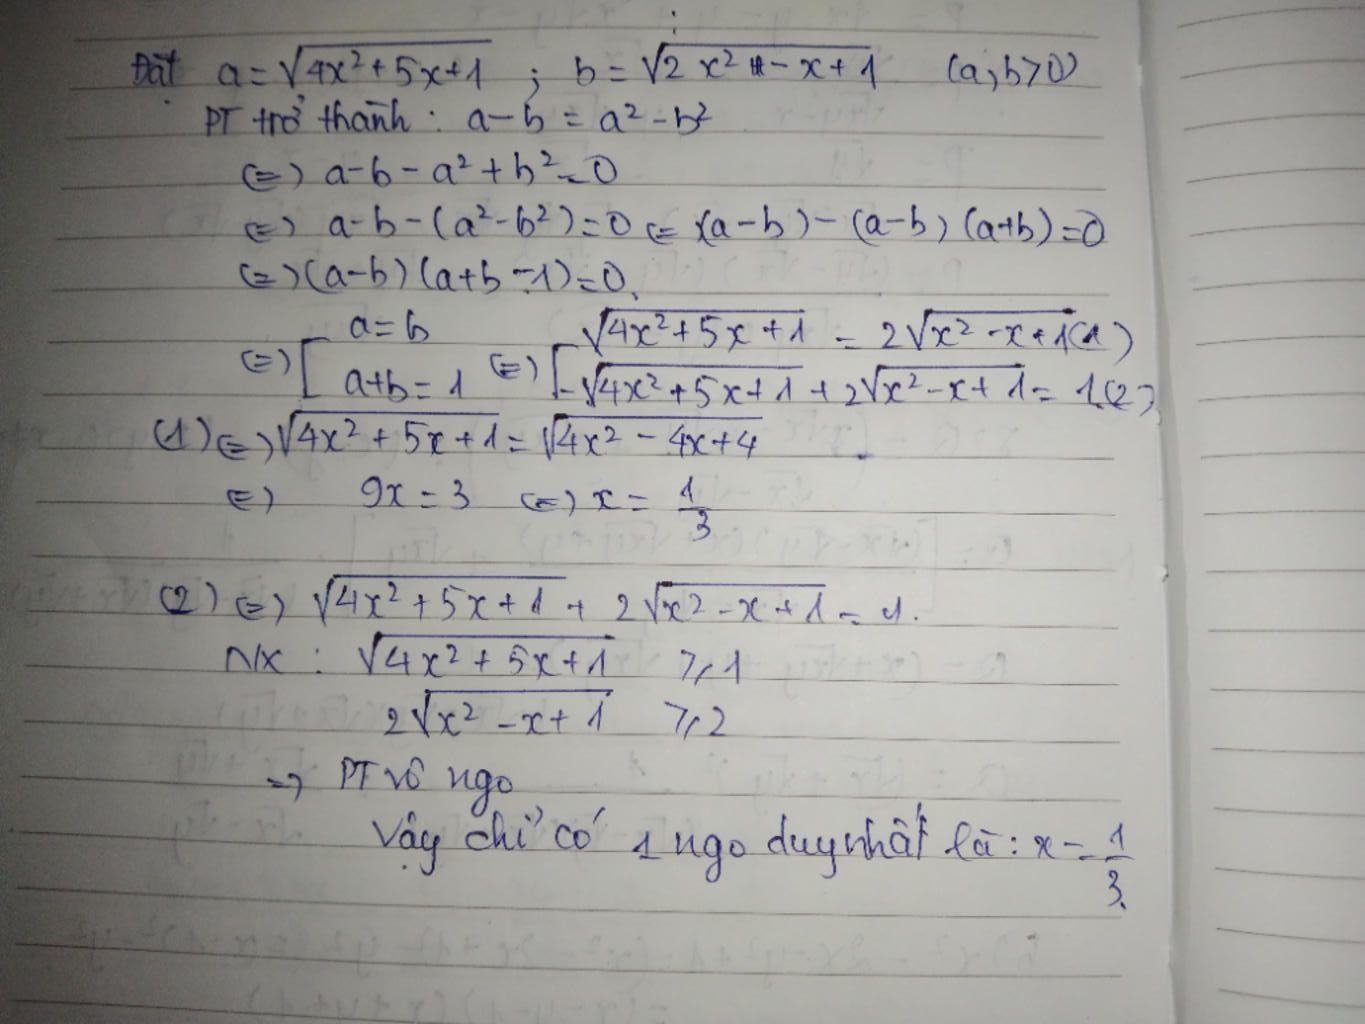 Đặt a = √(4x² + 5x + 1) ; b = √(2 x² - x + 1) (a, b > 0)
PT trở thành : a - b = a² - b²
(=) a - b - a² + b² = 0
(=) a - b - (a² - b²) = 0 (=) (a - b) - (a - b) (a + b) = 0
(=) (a - b) (a + b - 1) = 0
(=) [ a = b (=) [ √(4x² + 5x + 1) = 2√(x² - x + 1) (1)
a + b = 1 √(4x² + 5x + 1) + 2√(x² - x + 1) = 1 (2)
(1) (=) √(4x² + 5x + 1) = √(4x² - 4x + 4)
(=) 9x = 3 (=) x = 1/3
(2) (=) √(4x² + 5x + 1) + 2√(x² - x + 1) = 1.
N/x : √(4x² + 5x + 1) ≥ 1
2√(x² - x + 1) ≥ 2
=) PT vô ngo
Vậy chỉ có 1 ngo duy nhất là : x = 1/3.